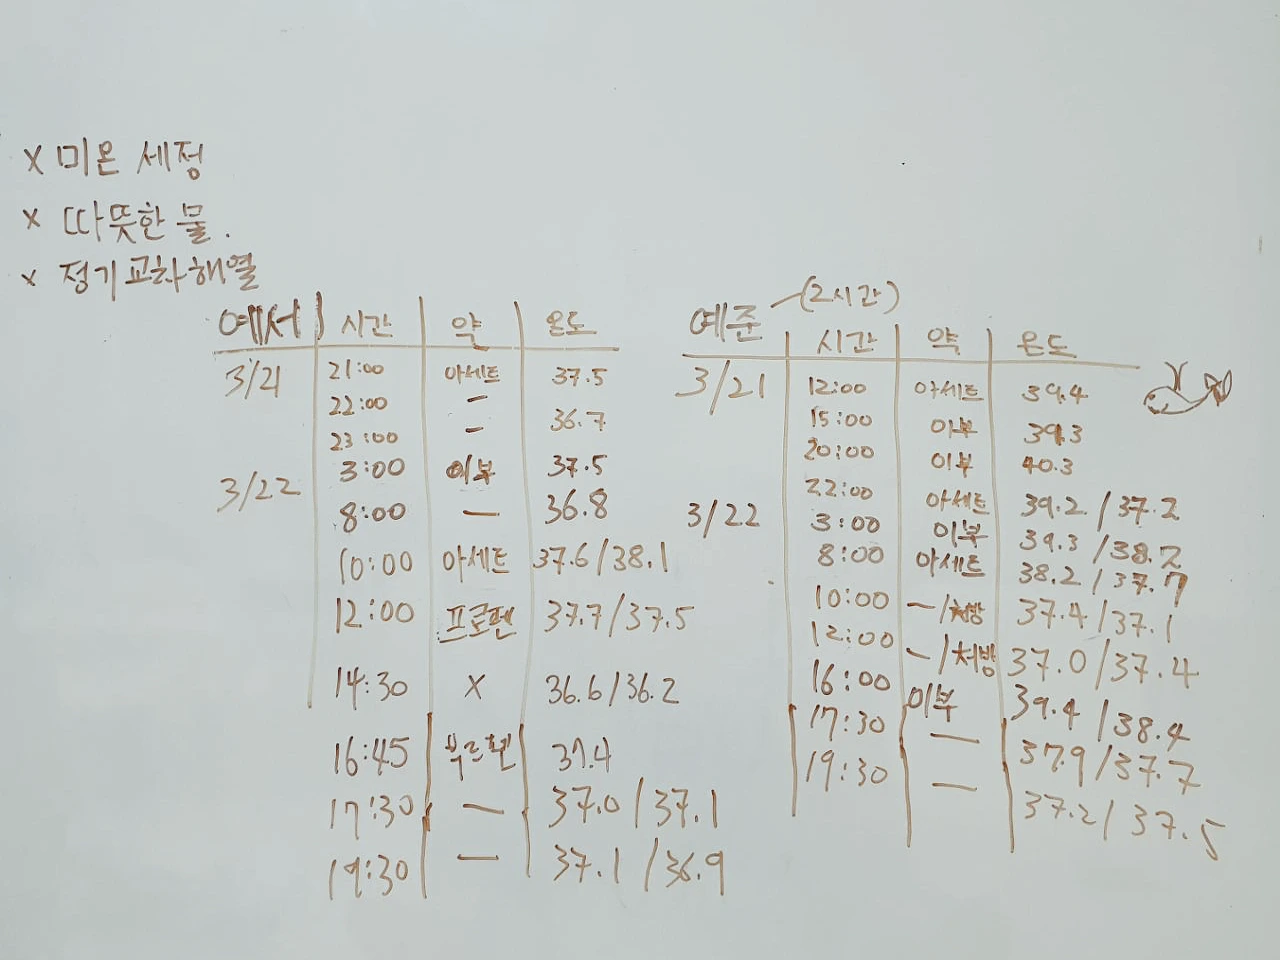 x 미온 세정
x 따뜻한 물.
x 정기교차해열
예서 시간 약 온도
3/21 21:00 아세트 37.5
22:00 - 36.7
23:00 - 37.5
3/22 3:00 이부 36.8
8:00 -
10:00 아세트 37.6/38.1
12:00 프로펜 37.7/37.5
14:30 x 36.6/36.2
16:45 부르펜 37.4
17:30 - 37.0/37.1
19:30 - 37.1/36.9
예준 (2시간)
시간 약 온도
3/21 12:00 아세트 39.4
15:00 이부 39.3
20:00 이부 40.3
22:00 아세트 39.2/37.2
3/22 3:00 이부 39.3/38.2
8:00 아세트 38.2/37.7
10:00 -/처방 37.4/37.1
12:00 -/처방 37.0/37.4
16:00 이부 39.4/38.4
17:30 - 37.9/37.7
19:30 - 37.2/37.5